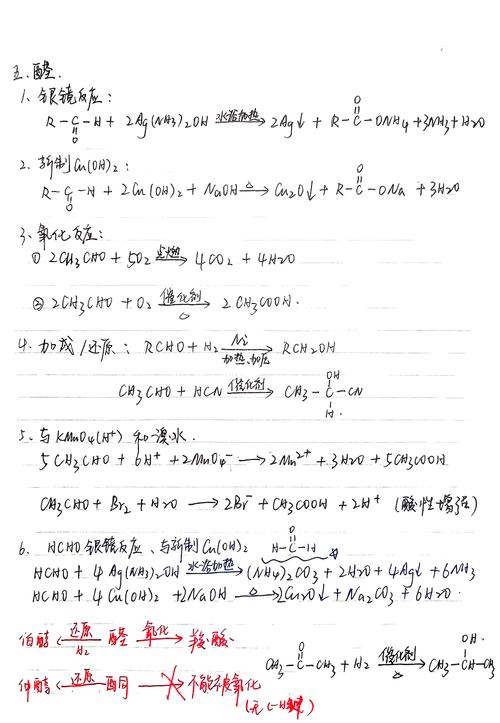 五.醛.
1、银镜反应：
R-C(=O)-H + 2Ag(NH3)2OH 水浴加热→ 2Ag↓ + R-C(=O)-ONH4 + 3NH3 + H2O
2. 新制Cu(OH)2：
R-C(=O)-H + 2Cu(OH)2 + NaOH △→ Cu2O↓ + R-C(=O)-ONa + 3H2O
3、氧化反应：
① 2CH3CHO + 5O2 点燃→ 4CO2 + 4H2O
② 2CH3CHO + O2 催化剂△→ 2CH3COOH.
4. 加成/还原： RCHO + H2 Ni 加热、加压→ RCH2OH
CH3CHO + HCN 催化剂→ CH3-C(OH)(H)-CN
5、与KMnO4(H+) 和溴水.
5CH3CHO + 6H+ + 2MnO4- → 2Mn2+ + 3H2O + 5CH3COOH
CH3CHO + Br2 + H2O → 2Br- + CH3COOH + 2H+ (酸性增强)
6. HCHO银镜反应、与新制Cu(OH)2 H-C(=O)-H
HCHO + 4Ag(NH3)2OH 水浴加热→ (NH4)2CO3 + 2H2O + 4Ag↓ + 6NH3
HCHO + 4Cu(OH)2 + 2NaOH △→ 2Cu2O↓ + Na2CO3 + 6H2O.
伯醇 ←还原 H2 醛 氧化→ 羧酸.
CH3-C(=O)-CH3 + H2 催化剂△→ CH3-CH(OH)-CH3
仲醇 ←还原 酮 ✕→ 不能被氧化
(无C-H键)